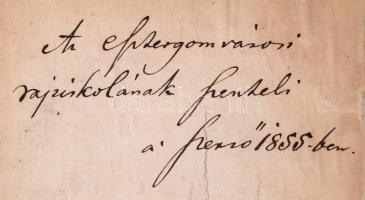 Az esztergomvárosi
rajziskolának szenteli
a' szerző 1855-ben.